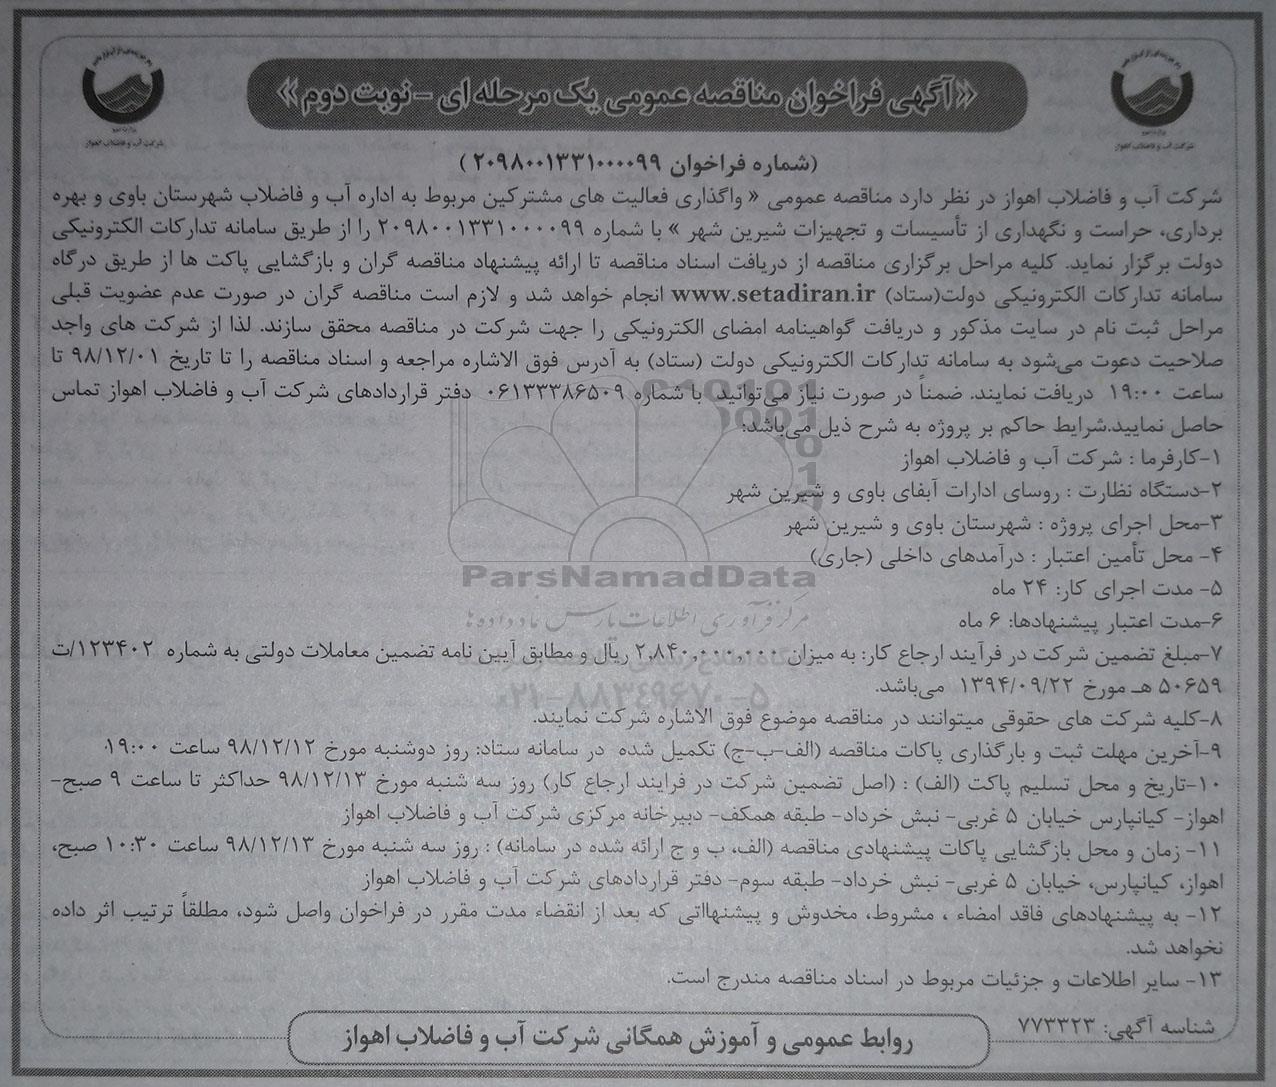 «آگهی فراخوان مناقصه عمومی یک مرحله ای -نوبت دوم»
وزارت نیرو
شرکت آب و فاضلاب اهواز
وزارت نیرو
شرکت آب و فاضلاب اهواز
(شماره فراخوان ۲۰۹۸۰۰۱۳۳۱۰۰۰۰۹۹ )
شرکت آب و فاضلاب اهواز در نظر دارد مناقصه عمومی « واگذاری فعالیت های مشترکین مربوط به اداره آب و فاضلاب شهرستان باوی و بهره
برداری، حراست و نگهداری از تأسیسات و تجهیزات شیرین شهر » با شماره ۲۰۹۸۰۰۱۳۳۱۰۰۰۰۹۹ را از طریق سامانه تدارکات الکترونیکی
دولت برگزار نماید. کلیه مراحل برگزاری مناقصه از دریافت اسناد مناقصه تا ارائه پیشنهاد مناقصه گران و بازگشایی پاکت ها از طریق درگاه
سامانه تدارکات الکترونیکی دولت(ستاد) www.setadiran.ir انجام خواهد شد و لازم است مناقصه گران در صورت عدم عضویت قبلی
مراحل ثبت نام در سایت مذکور و دریافت گواهینامه امضای الکترونیکی را جهت شرکت در مناقصه محقق سازند. لذا از شرکت های واجد
صلاحیت دعوت می‌شود به سامانه تدارکات الکترونیکی دولت (ستاد) به آدرس فوق الاشاره مراجعه و اسناد مناقصه را تا تاریخ ۹۸/۱۲/۰۱ تا
ساعت ۱۹:۰۰ دریافت نمایند. ضمناً در صورت نیاز می‌توانید با شماره ۰۶۱۳۳۳۸۶۵۰۹ دفتر قراردادهای شرکت آب و فاضلاب اهواز تماس
حاصل نمایید.شرایط حاکم بر پروژه به شرح ذیل می‌باشد:
۱-کارفرما : شرکت آب و فاضلاب اهواز
۲-دستگاه نظارت : روسای ادارات آبفای باوی و شیرین شهر
۳-محل اجرای پروژه : شهرستان باوی و شیرین شهر
۴- محل تأمین اعتبار : درآمدهای داخلی (جاری)
ParsNamadData
۵- مدت اجرای کار: ۲۴ ماه
مرکز فرآوری اطلاعات پارس نماد داده ها
۶-مدت اعتبار پیشنهادها: ۶ ماه
۷-مبلغ تضمین شرکت در فرآیند ارجاع کار: به میزان ۲,۸۴۰,۰۰۰,۰۰۰ ریال و مطابق آیین نامه تضمین معاملات دولتی به شماره ۱۲۳۴۰۲/ت
۵۰۶۵۹ هـ مورخ ۱۳۹۴/۰۹/۲۲ می‌باشد.
۰۲۱-۸۸۳۴۹۶۷۰-۵
۸-کلیه شرکت های حقوقی میتوانند در مناقصه موضوع فوق الاشاره شرکت نمایند.
۹-آخرین مهلت ثبت و بارگذاری پاکات مناقصه (الف-ب-ج) تکمیل شده در سامانه ستاد: روز دوشنبه مورخ ۹۸/۱۲/۱۲ ساعت ۱۹:۰۰
۱۰-تاریخ و محل تسلیم پاکت (الف) : (اصل تضمین شرکت در فرایند ارجاع کار) روز سه شنبه مورخ ۹۸/۱۲/۱۳ حداکثر تا ساعت ۹ صبح-
اهواز- کیانپارس خیابان ۵ غربی- نبش خرداد- طبقه همکف- دبیرخانه مرکزی شرکت آب و فاضلاب اهواز
۱۱- زمان و محل بازگشایی پاکات پیشنهادی مناقصه (الف، ب و ج ارائه شده در سامانه) : روز سه شنبه مورخ ۹۸/۱۲/۱۳ ساعت ۱۰:۳۰ صبح،
اهواز، کیانپارس، خیابان ۵ غربی- نبش خرداد- طبقه سوم- دفتر قراردادهای شرکت آب و فاضلاب اهواز
۱۲- به پیشنهادهای فاقد امضاء ، مشروط، مخدوش و پیشنهااتی که بعد از انقضاء مدت مقرر در فراخوان واصل شود، مطلقاً ترتیب اثر داده
نخواهد شد.
۱۳- سایر اطلاعات و جزئیات مربوط در اسناد مناقصه مندرج است.
شناسه آگهی: ۷۷۳۳۲۳
روابط عمومی و آموزش همگانی شرکت آب و فاضلاب اهواز